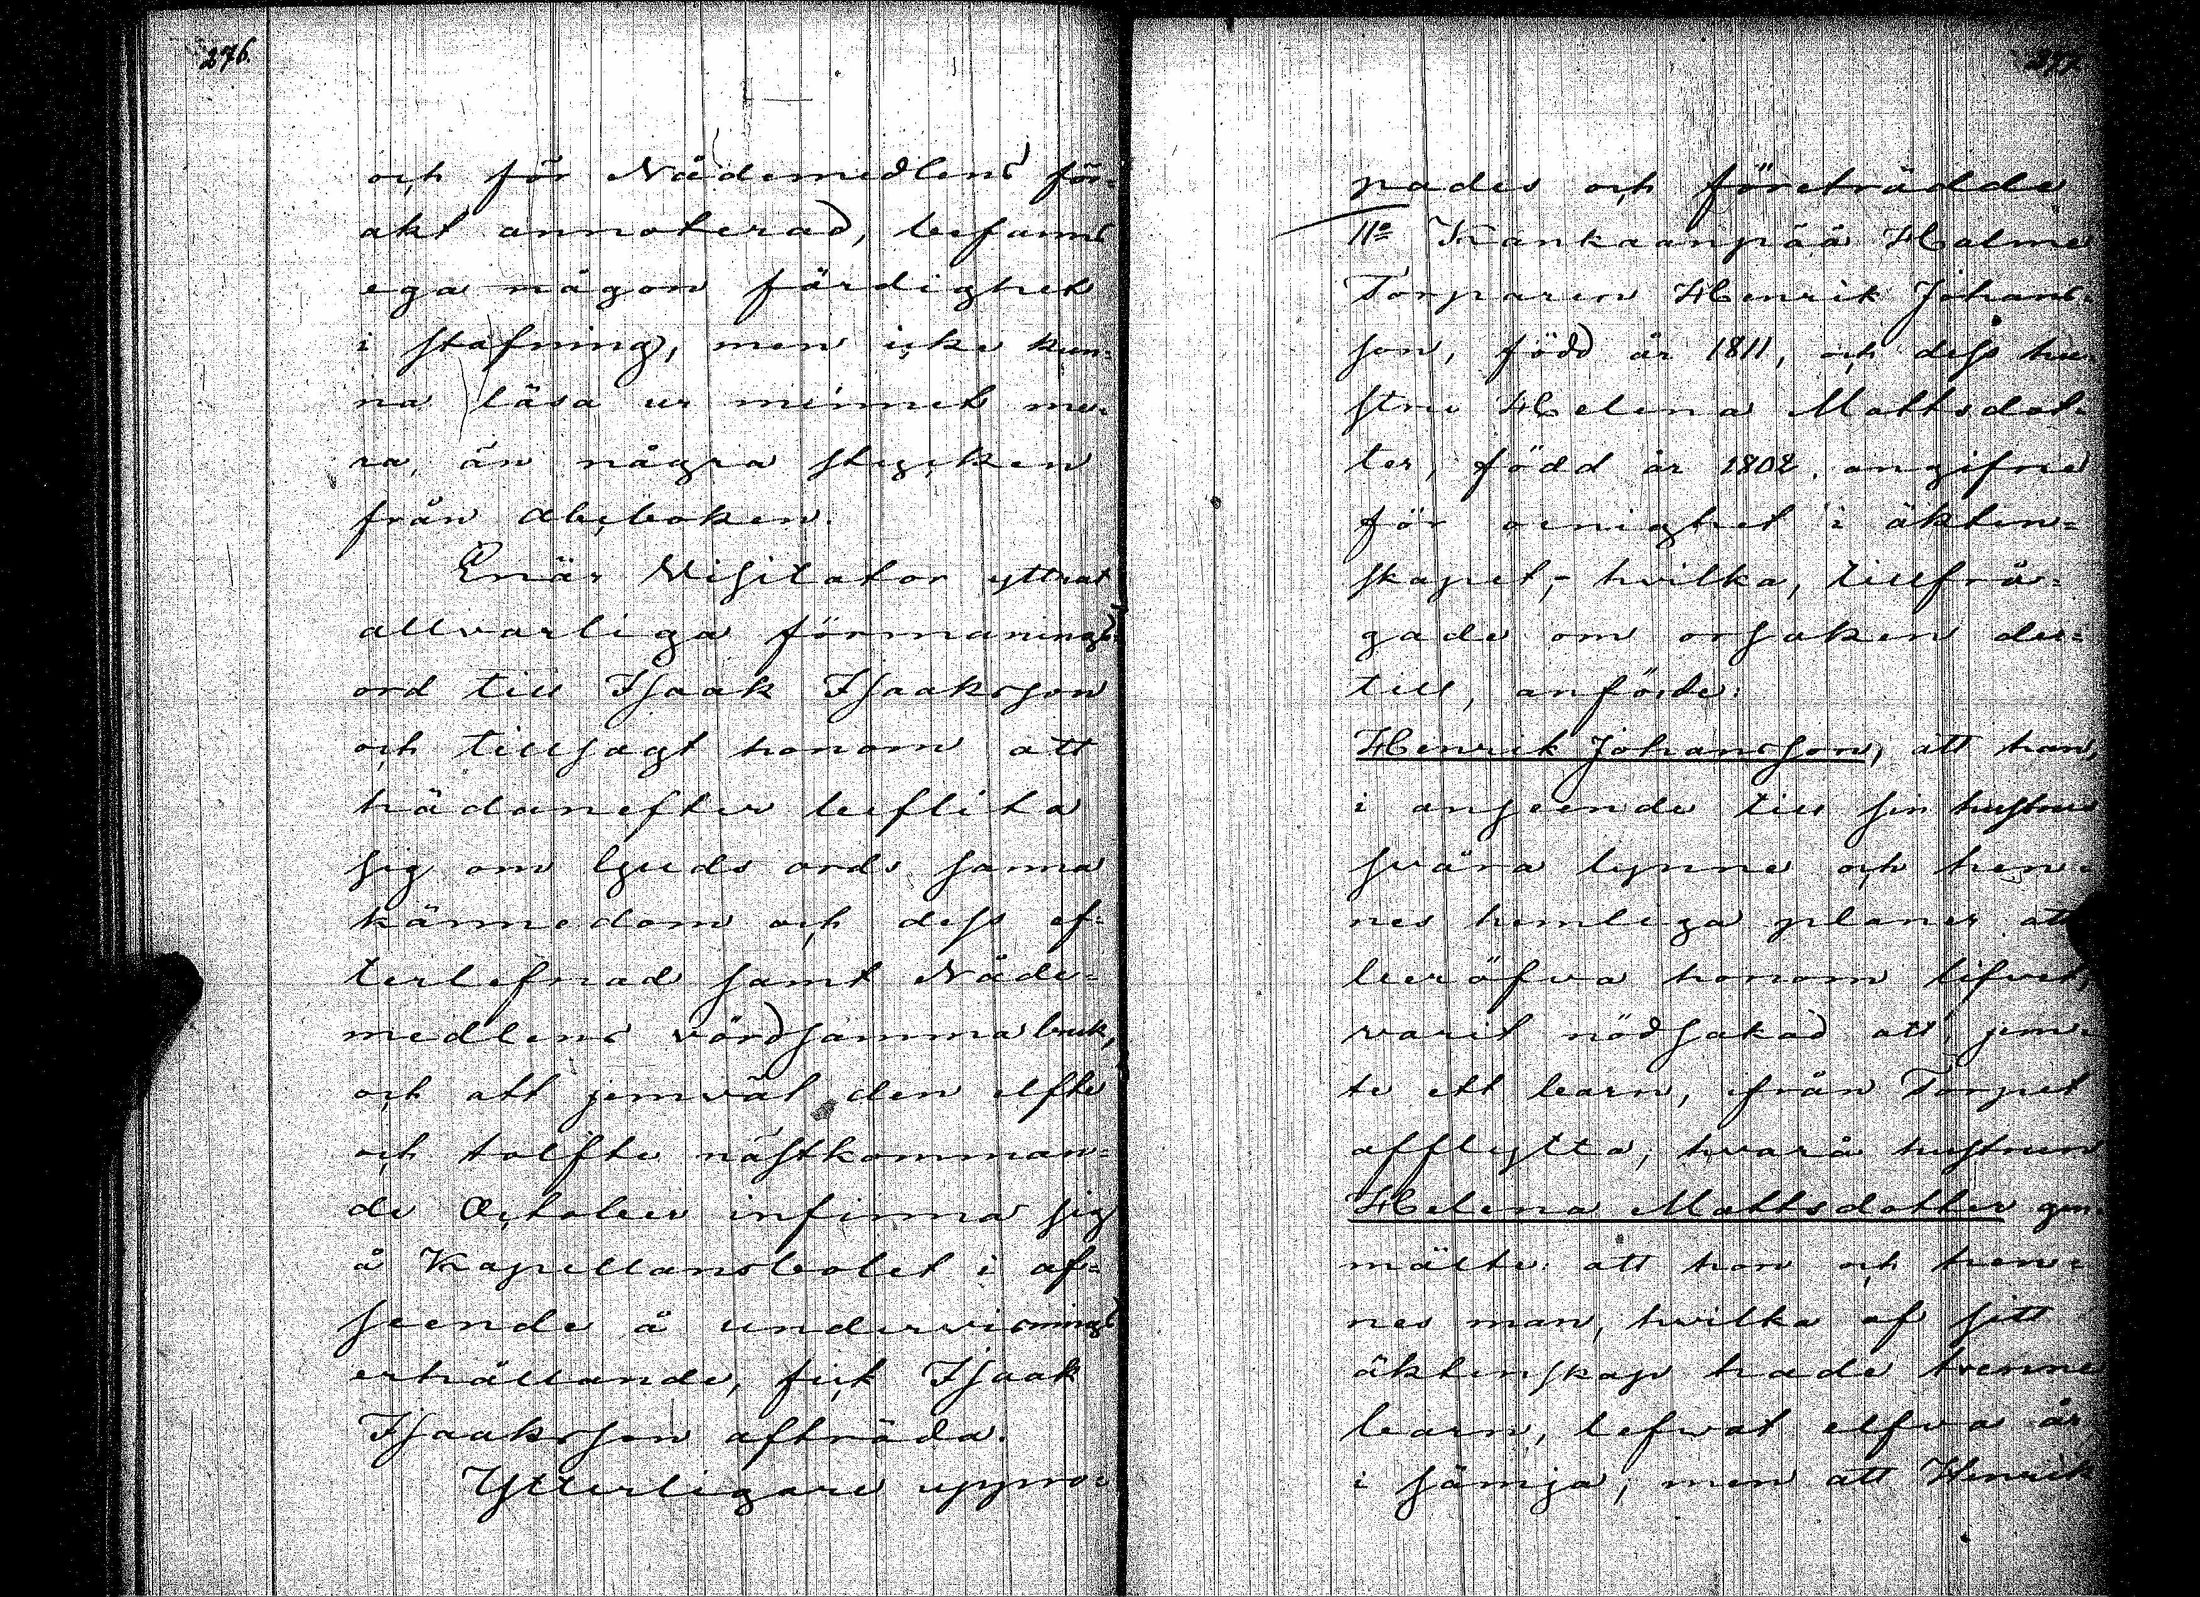 276.
och för Nådemedlens för-
akt annoterad, befanns
ega någon färdighet
i stafning, men icke kun-
na läsa ur minnet me-
ra, än några stycken
från abcboken.
Enär Visitator yttrat
allvarliga förmanings-
ord till Isaak Isaaksson
och tillsagt honom att
hädanefter beflita
sig om Guds ords sanna
kännedom och dess ef-
terlefnad samt Nåde-
medlens vördsamma bruk,
och att jemväl den elfte
och tolfte nästkomman-
de October infinna sig
å Kapellansbolet i af-
seende å undervisnings
erhållande, fick Isaak
Isaaksson afträda.
Ytterligare uppro-
277
pades och företrädde
11º Kankaanpää Holme
Torparen Henrik Johans-
son, född år 1811, och dess hu-
stru Helena Mattsdot-
ter, född år 1802, angifne
för oenighet i äkten-
skapet,- hvilka, tillfrå-
gade om orsaken der-
till, anförde:
Henrik Johansson, att han,
i anseende till sin hustrus
svåra lynne och hen-
nes hemliga planer att
beröfva honom lifvet,
varit nödsakad att, jem-
te ett barn, från Torpet
afflytta, hvarå hustrun
Helena Mattsdotter gen-
mälte: att hon och hen-
nes man, hvilka af sitt
äktenskap hade trenne
barn, lefwat elfva år
i sämja, men att Henrik